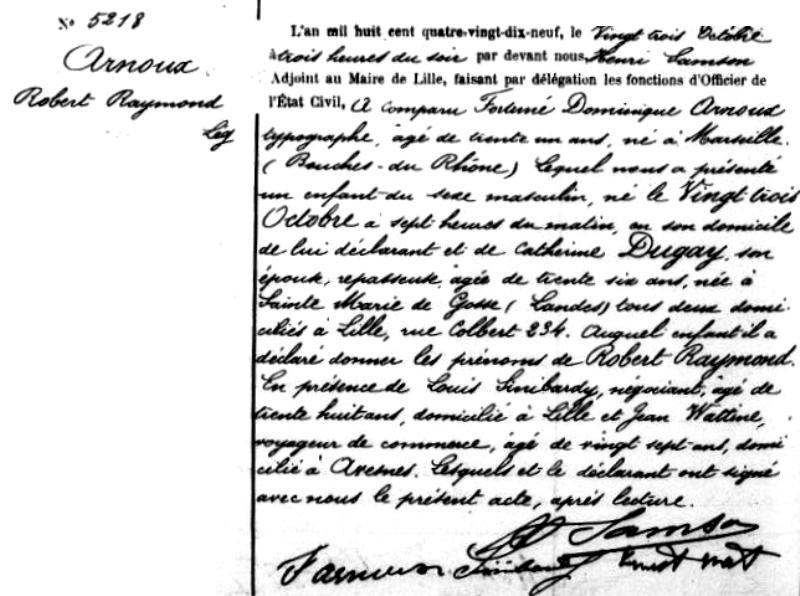 N° 5218
Arnoux
Robert Raymond
Lég
L'an mil huit cent quatre-vingt-dix-neuf, le Vingt trois Octobre
à trois heures du soir par devant nous, Henri Samson
Adjoint au Maire de Lille, faisant par délégation les fonctions d'Officier de
l'État Civil, A comparu Fortuné Dominique Arnoux
typographe, âgé de trente un ans, né à Marseille.
(Bouches-du Rhône) Lequel nous a présenté
un enfant du sexe masculin, né le Vingt trois
Octobre à sept heures du matin, en son domicile
de lui déclarant et de Catherine Dugay, son
épouse, repasseuse, âgée de trente six ans, née à
Sainte Marie de Gosse (Landes) tous deux domi-
ciliés à Lille, rue Colbert 234. Auquel enfant il a
déclaré donner les prénoms de Robert Raymond.
En présence de Louis Sinibardy, négociant, âgé de
trente huit ans, domicilié à Lille et Jean Wattine,
voyageur de commerce, âgé de vingt sept ans, domi
cilié à Avesnes. Lesquels et le déclarant ont signé
avec nous le présent acte, après lecture.
Samson